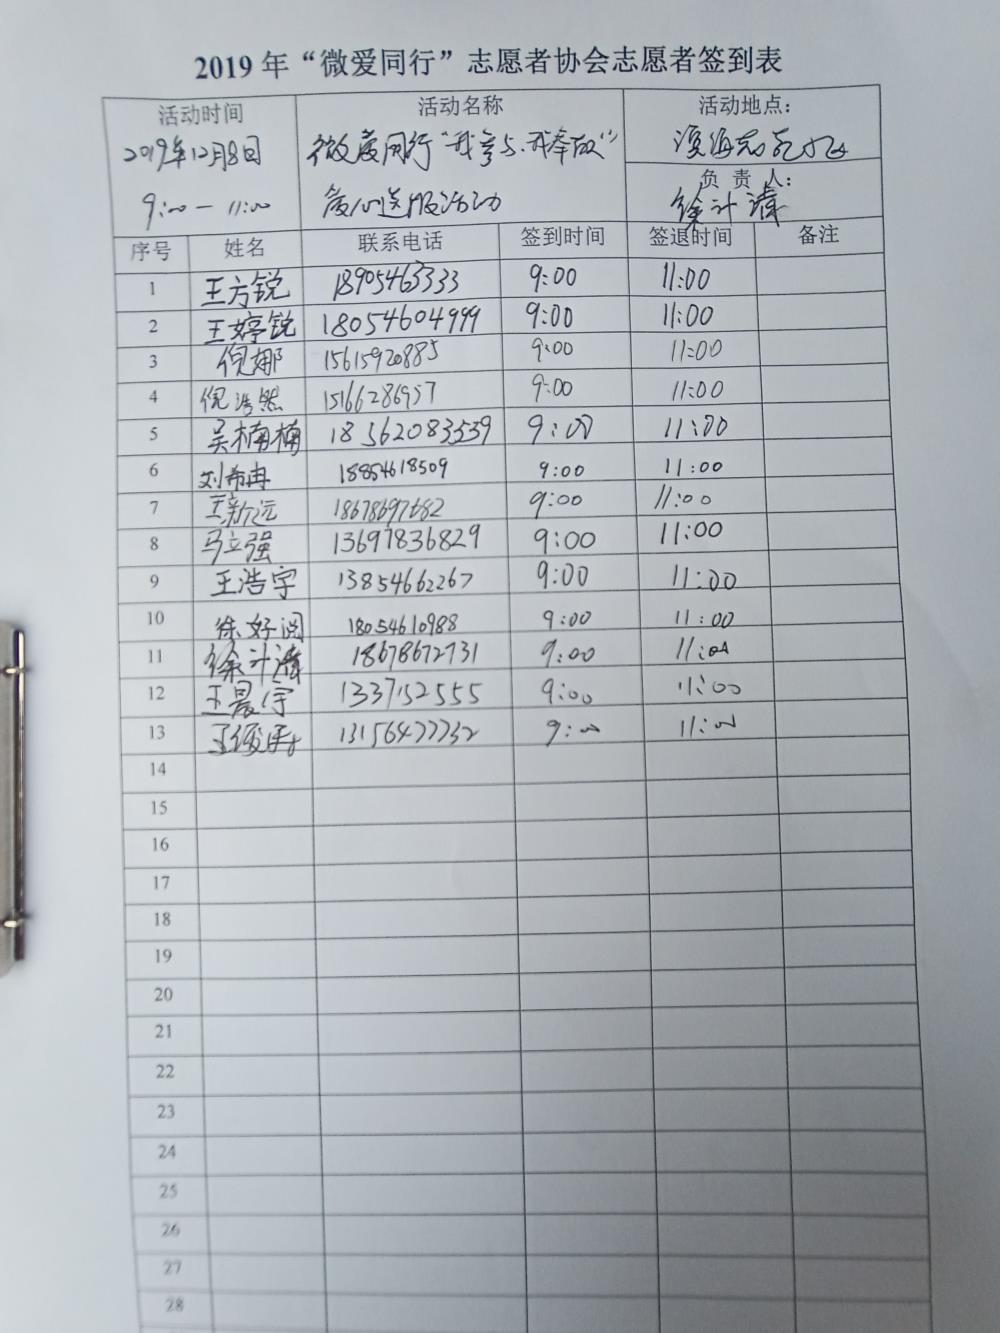 2019 年“微爱同行”志愿者协会志愿者签到表
活动时间 活动名称 活动地点：
2019年12月8日 微爱同行“我参与、我奉献” 滨海
9:00 — 11:00 爱心送服活动 负 责 人： 徐计清
序号 姓名 联系电话 签到时间 签退时间 备注
1 王方锐 18905463333 9:00 11:00
2 王婷锐 18054604999 9:00 11:00
3 倪娜 15615920885 9:00 11:00
4 倪浩然 15166286957 9:00 11:00
5 吴楠楠 18562083539 9:00 11:00
6 刘希冉 18854618509 9:00 11:00
7 王新远 18678697682 9:00 11:00
8 马立强 13697836829 9:00 11:00
9 王浩宇 13854662267 9:00 11:00
10 徐好 18054610988 9:00 11:00
11 徐计清 18678672731 9:00 11:00
12 王晨宇 1337152555 9:00 11:00
13 13156477732 9:00 11:00
14
15
16
17
18
19
20
21
22
23
24
25
26
27
28